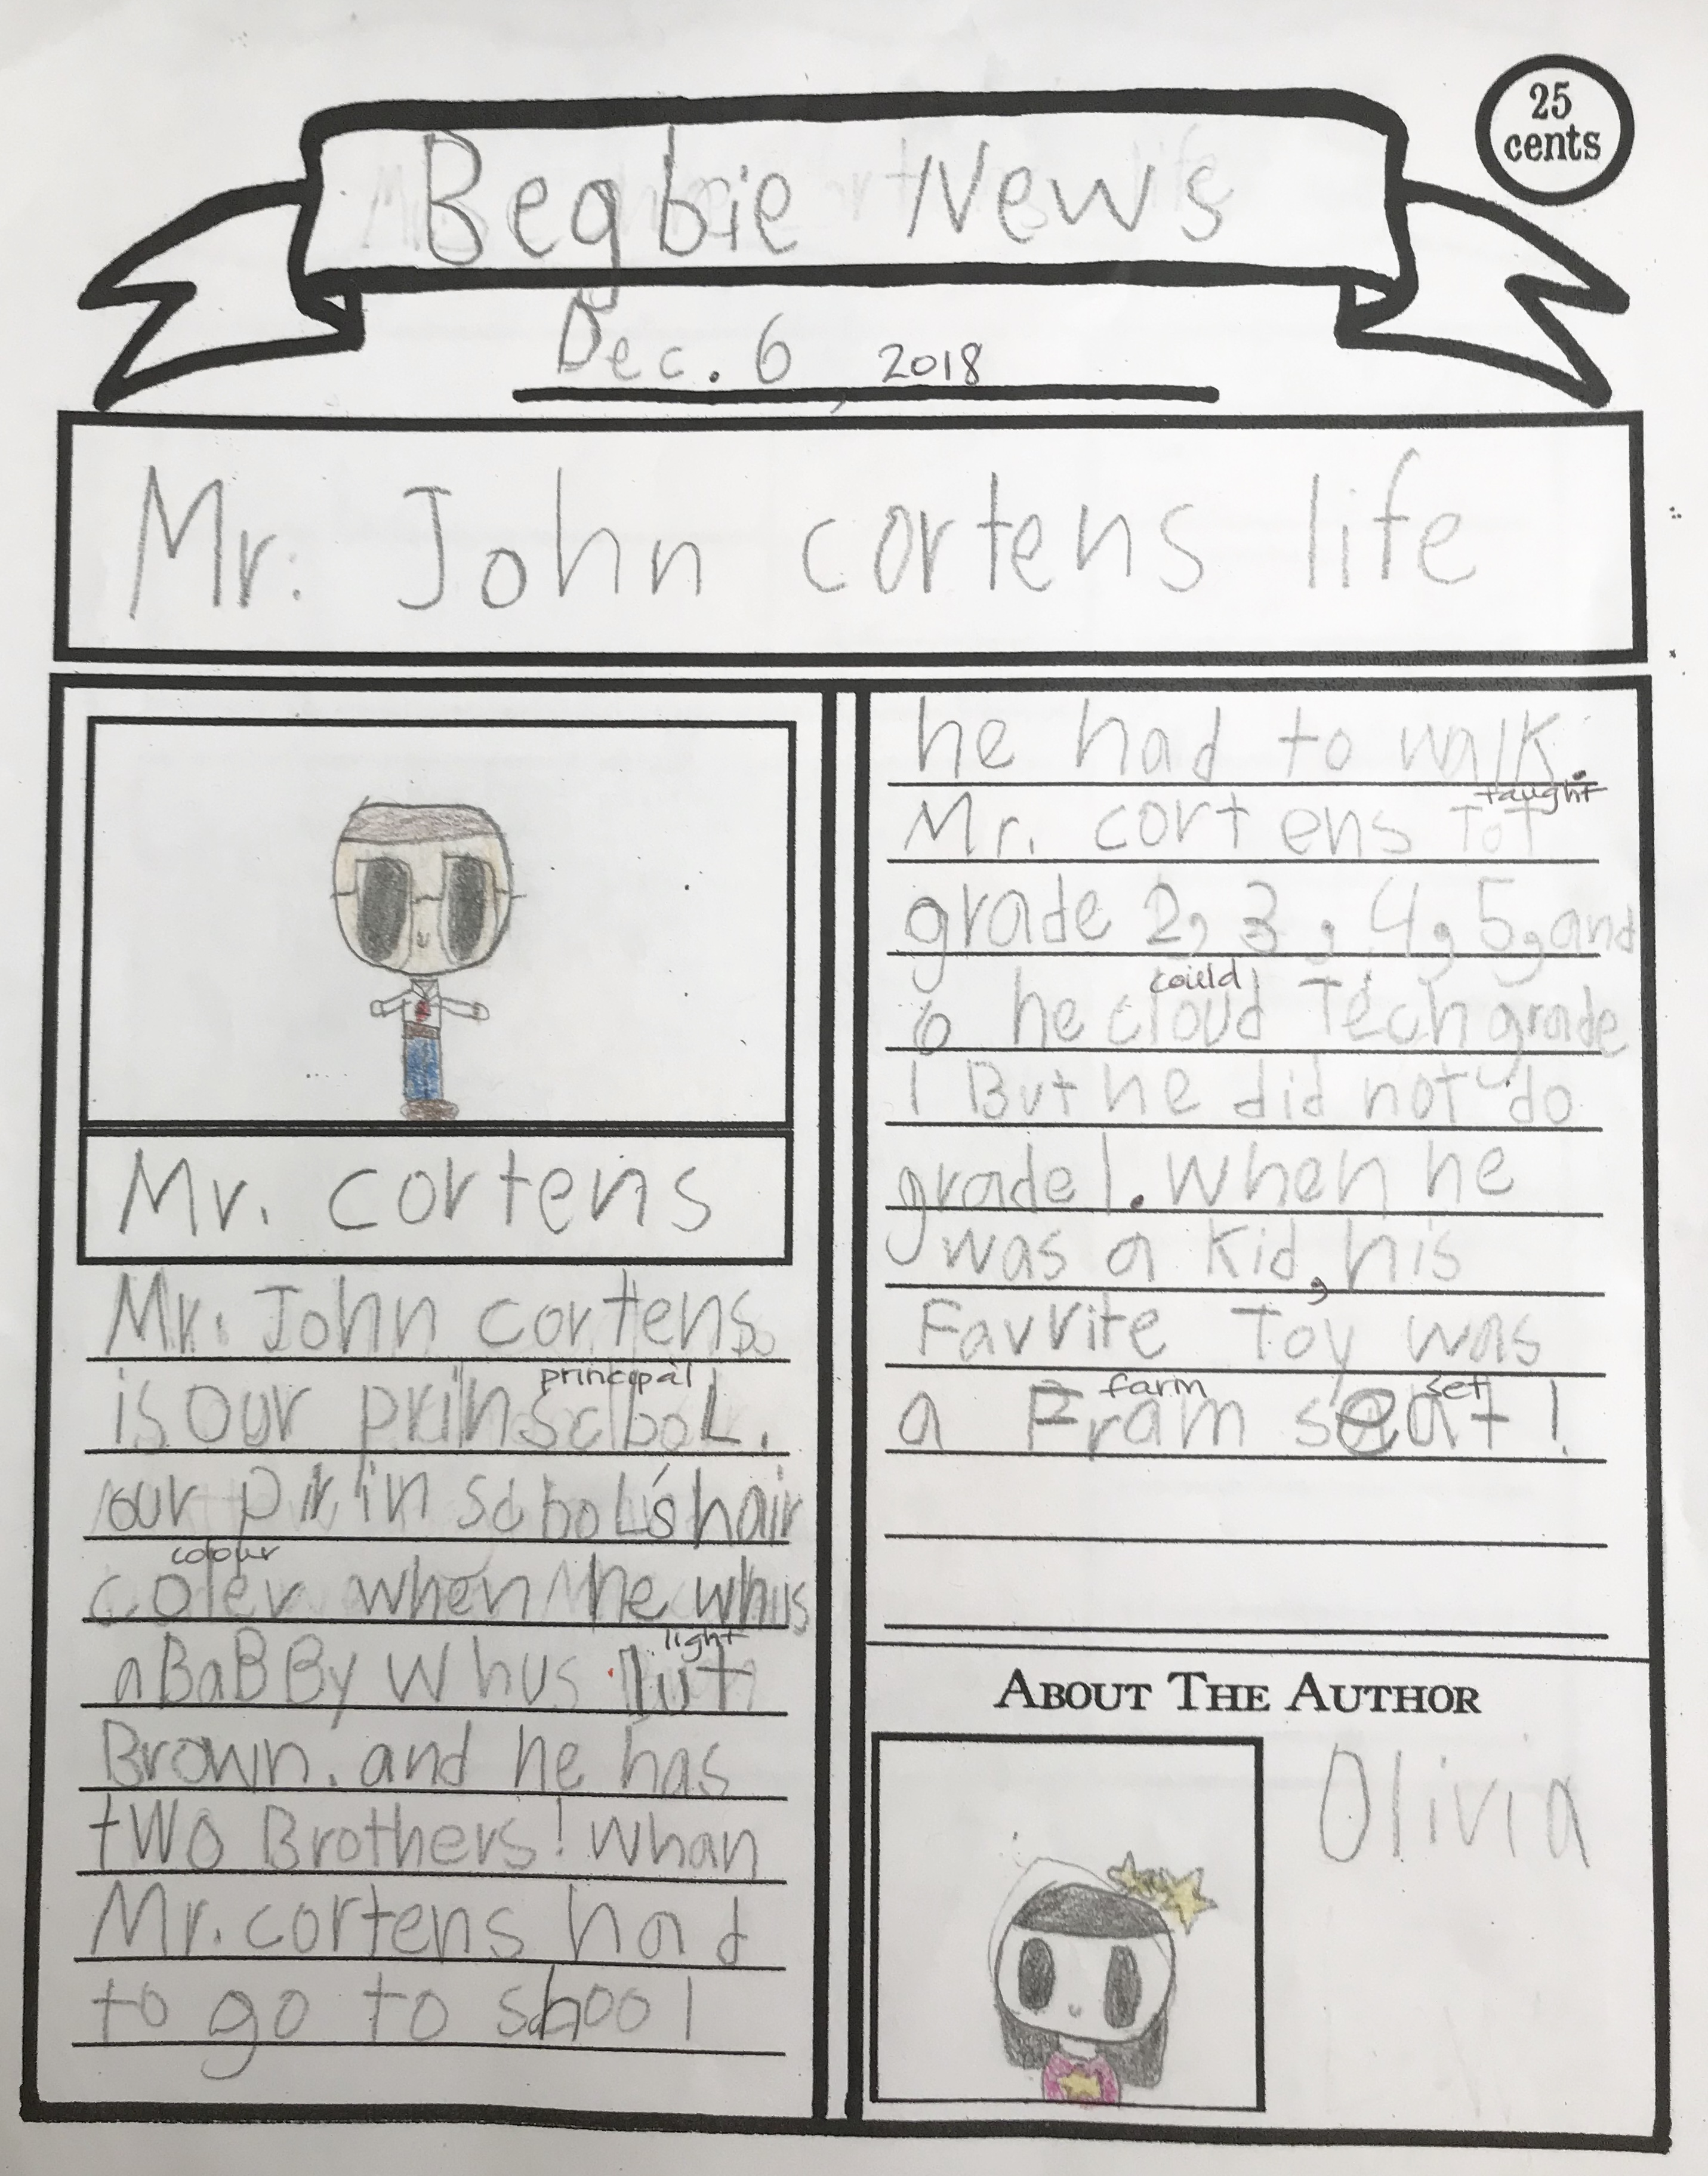 25
cents
Begbie News
Dec. 6, 2018
Mr. John cortens life
Mr. cortens
Mr. John cortens
principal
is our prinscbol.
our prinscbol's hair
colour
coler when he whus
light
a BaBBy whus lut
Brown. and he has
two Brothers! whan
Mr. cortens had
to go to shool
he had to walk.
taught
Mr. cortens Tot
grade 2, 3, 4, 5, and
could
6 he cloud Tech grade
1 But he did not do
grade 1. when he
was a kid, his
Favrite Toy was
farm set
a Fram seat!
ABOUT THE AUTHOR
Olivia